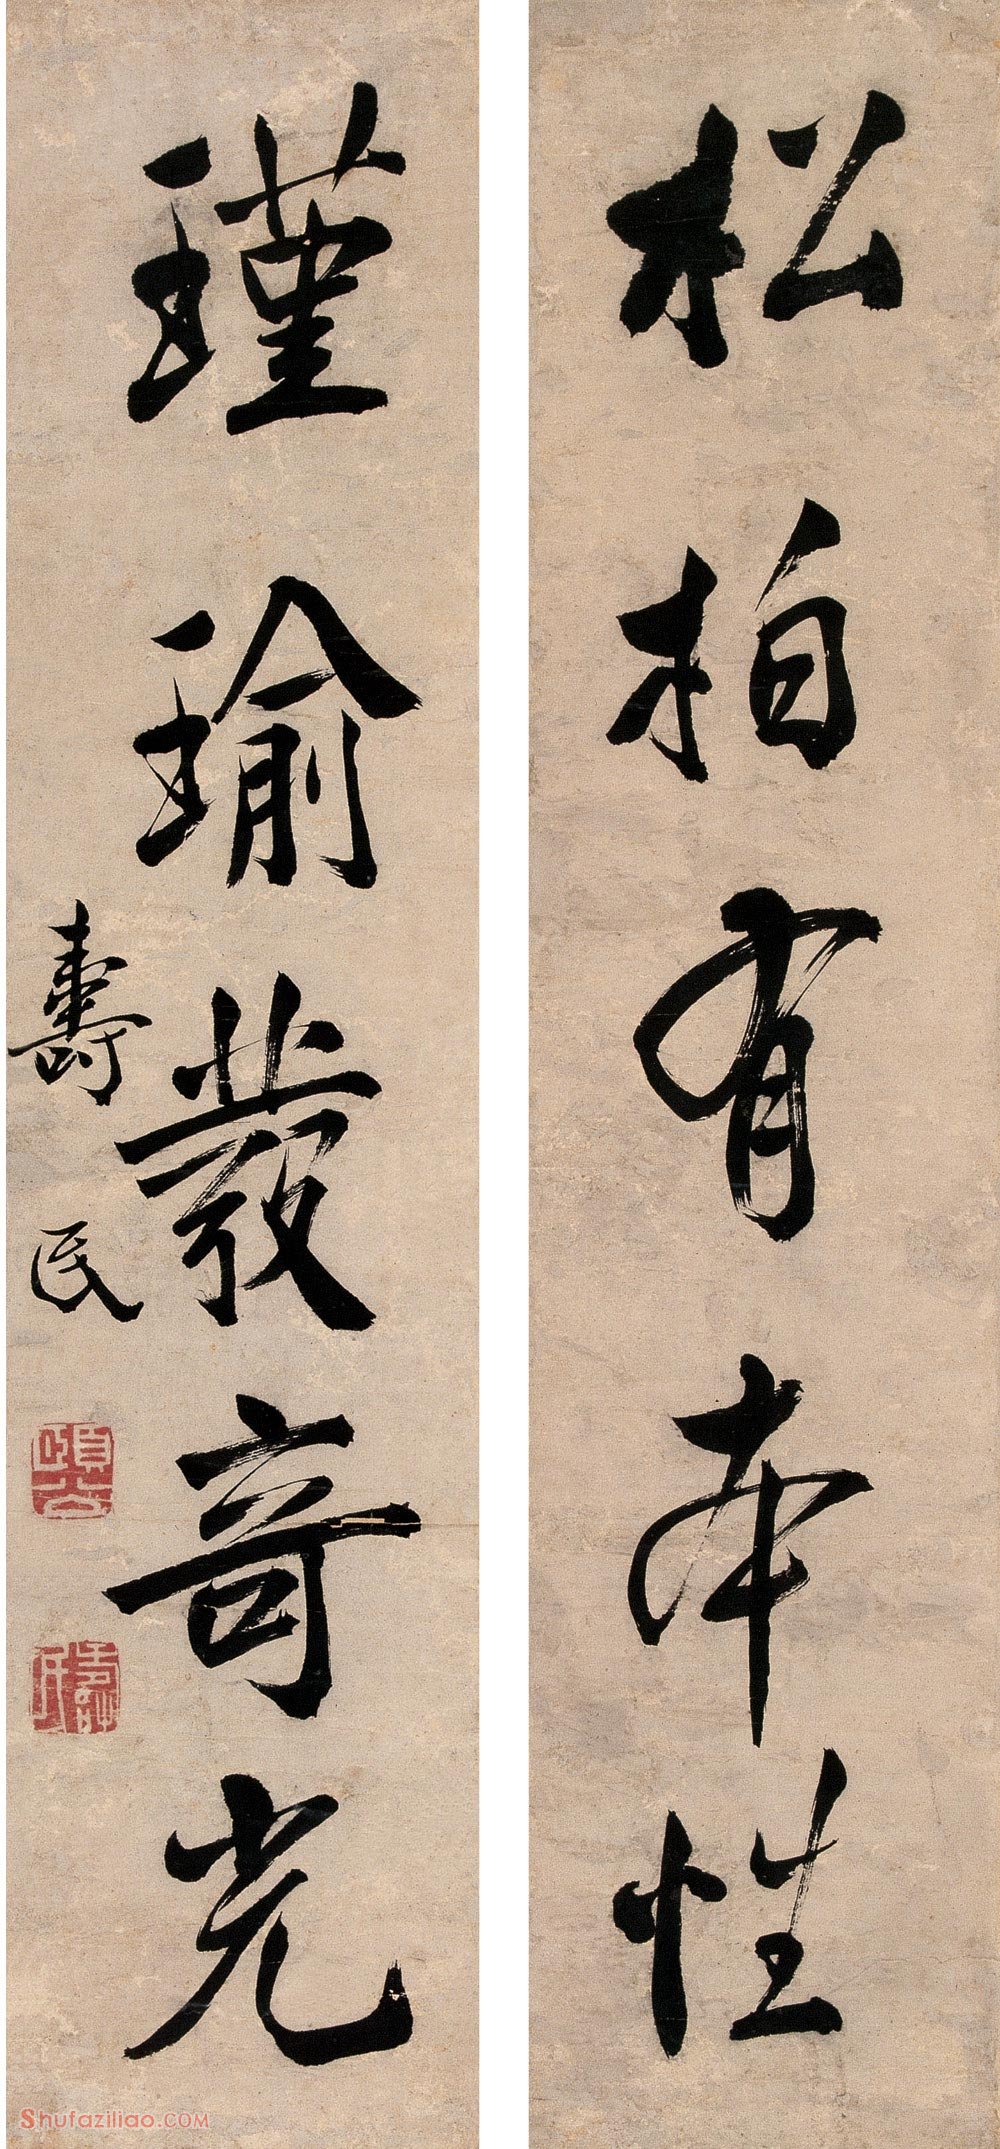 松柏有本性
瑾瑜發奇光
壽民
Shufaziliao.COM